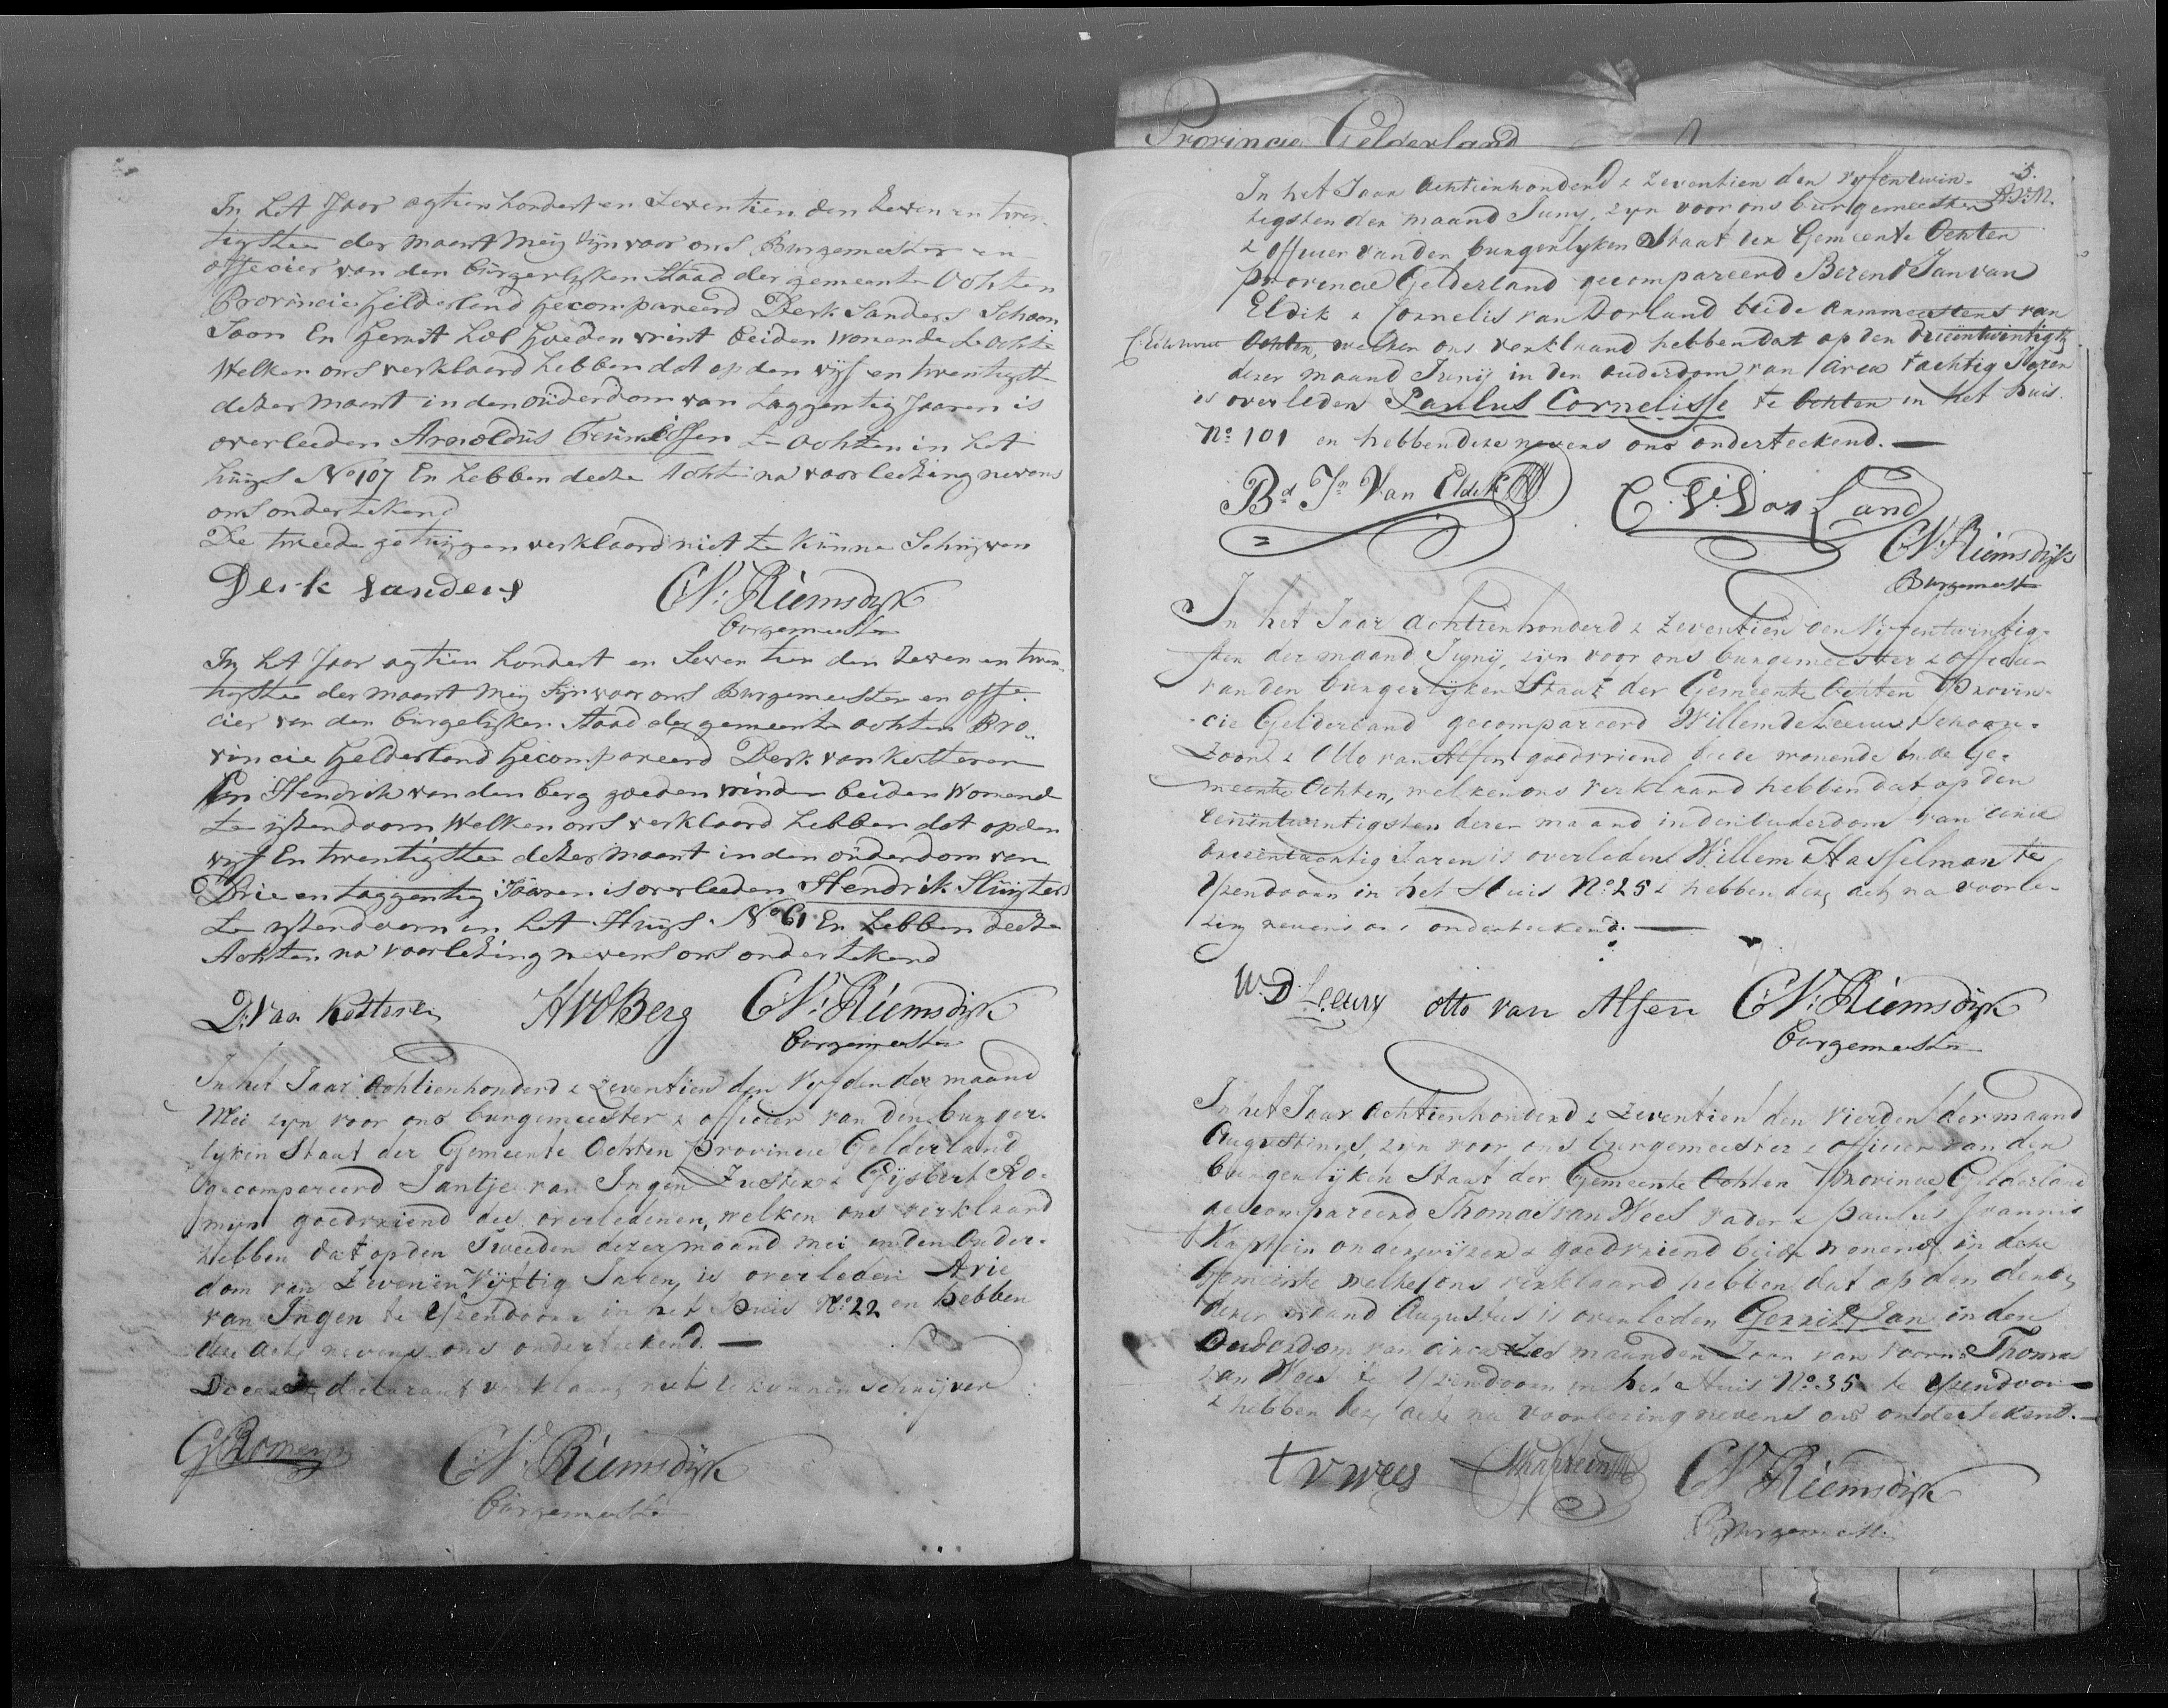 In het Jaar agtien hondert en Seventien den Seven en twen„
tigste der maant Meij zijn voor ons Burgemeester en
offecier van den burgerlijken Staad der gemeente Ochten
Provincie Gelderland Gecompareerd Derk Sanders Schoon
Soon En Gerrit Hol Goeden vrint beiden Wonende te Ochte
Welken ons verklaard hebben dat op den vijf en twentigste
dezer maant in den ouderdom van taggentig Jaaren is
overleeden Arnoldus Teunissen te Ochten in het
huijs No 107 En hebben deeze Achte na voorleezing nevens
ons ondertekend
De tweede getuijgen verklaard niet te kunne Schrijven
Derk Sanders CV: Riemsdijk
Burgemeester
In het Jaar agtien hondert en Seventien den Zeven en twen„
tigste der maant Meij Zijn voor ons Burgemeester en offe„
cier van den burgelijken Staad der gemeente Ochten Pro„
vincie Gelderland Gecompareerd Derk van Kesteren
En Hendrik van den berg goeden vrinden beiden Wonend
te ijsendoorn Welken ons verklaard hebben dat op den
vijf En twentigste dezer maant in den ouderdom van
Drie en taggentig Jaaren is overleeden Hendrik Sluijters
te ijsendoorn in het Huijs No 61 En hebben deeze
Achten na voorlezing nevens ons ondertekend
D. Van Kesteren HVDBerg CV: Riemsdijk
Burgemeester
In het Jaar Achtienhonderd & zeventien den Vyfden der maand
Mei zyn voor ons burgemeester & officier van den burger-
lyken Staat der Gemeente Ochten provincie Gelderland
gecompareerd Jantje van Ingen Zuster & Gijsbert Ro-
mijn goedvriend des overledenen, welken ons verklaard
hebben dat op den Tweeden dezer maand mei in den Ouder-
dom van Zevenen Vijftig Jaren is overleden Arie
van Ingen te Ysendoorn in het Huis No. 22 en hebben
deze acte nevens ons onderteekend. —
De eerste declarant verklaard niet te kunnen schrijven
GRomeyn CV: Riemsdijk
Burgemeester
Provincie Gelderland
5.
In het Jaar Achtienhonderd & zeventien den vyfentwin-
tigsten der maand Juny, zyn voor ons burgemeester
& officier van den burgerlyken Staat der Gemeente Ochten
provincie Gelderland gecompareerd Berend Jan van
Eldik & Cornelis van Dorland beide armmeesters van
Ochten, welken ons verklaard hebben dat op den drieentwintigst
dezer maand Junij in den ouderdom van circa tachtig Jaren
is overleden Paulus Cornelisse te Ochten in het Huis
No. 101 en hebben deze nevens ons onderteekend. —
Bd Jn Van Eldik C. V: Dor Land
CV: Riemsdijk
Burgemeester
In het Jaar Achtienhonderd & Zeventien den Vyfentwintig-
sten der maand Junij, zijn voor ons burgemeester & officier
van den burgerlijken Staat der Gemeente Ochten Provin-
cie Gelderland gecompareerd Willem de Leeuw Schoon-
zoon & Otto van Alfen goedvriend beide wonende in de Ge-
meente Ochten, welken ons verklaard hebben dat op den
eenentwintigsten dezer maand in den ouderdom van circa
drieentachtig Jaren is overleden Willem Hasselman te
Ysendoorn in het Huis No. 25 & hebben deze acte na voorle-
zing nevens ons onderteekend. —
W. D Leeuw otto van Alfen CV: Riemsdijk
Burgemeester
In het Jaar Achtienhonderd & Zeventien den Vierden der maand
Augustus, zyn voor ons burgemeester & officier van den
burgerlijken Staat der Gemeente Ochten Provincie Gelderland
gecompareerd Thomas van Wees vader & paulus Joannis
onderwijzer & goedvriend beide wonend in deze
Gemeente welke ons verklaard hebben dat op den derde
dezer maand Augustus is overleden Gerrit Jan in den
Ouderdom van circa zes maanden Zoon van voorn. Thomas
van Wees te Ysendoorn in het Huis No. 35 te Ysendoorn
& hebben deze acte na voorlezing nevens ons ondertekend. —
t v wees CV: Riemsdijk
Burgemeester